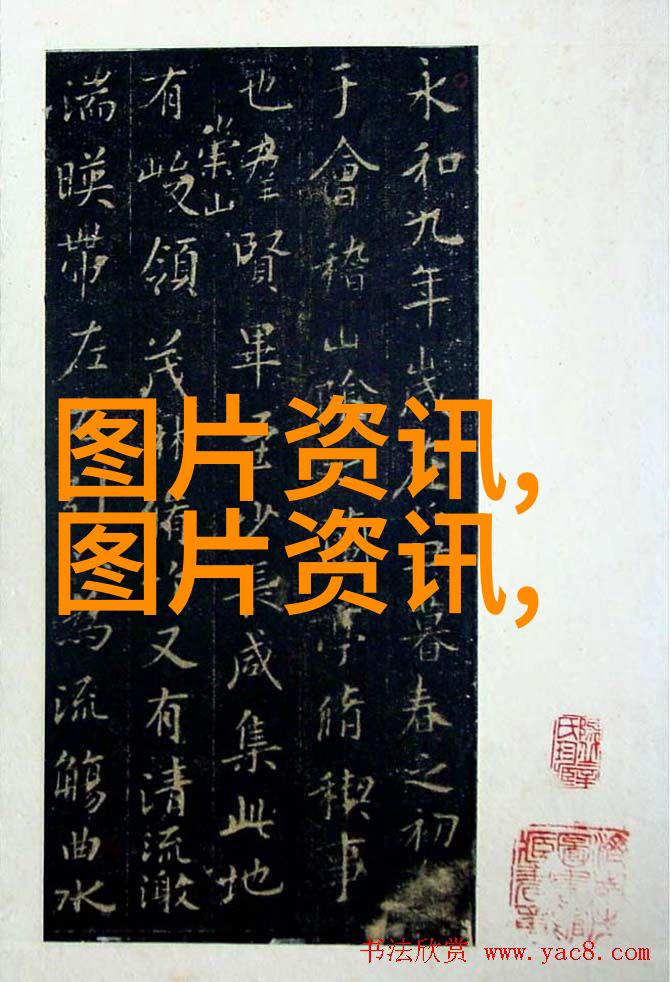 永和九年歲暮春之初
于會稽山陰亭脩稧事
也羣賢畢至少長咸集此地
有崇山峻領茂林脩又有清流激
湍暎帶左為流觴曲水
图片资讯,
图片资讯,
书法欣赏 www.yac8.com